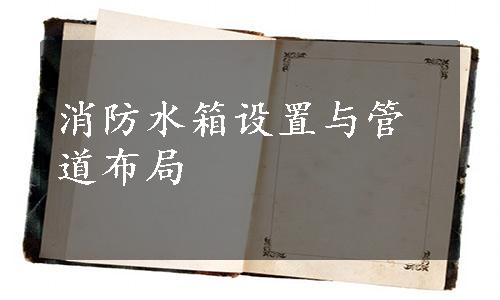 消防水箱设置与管
道布局